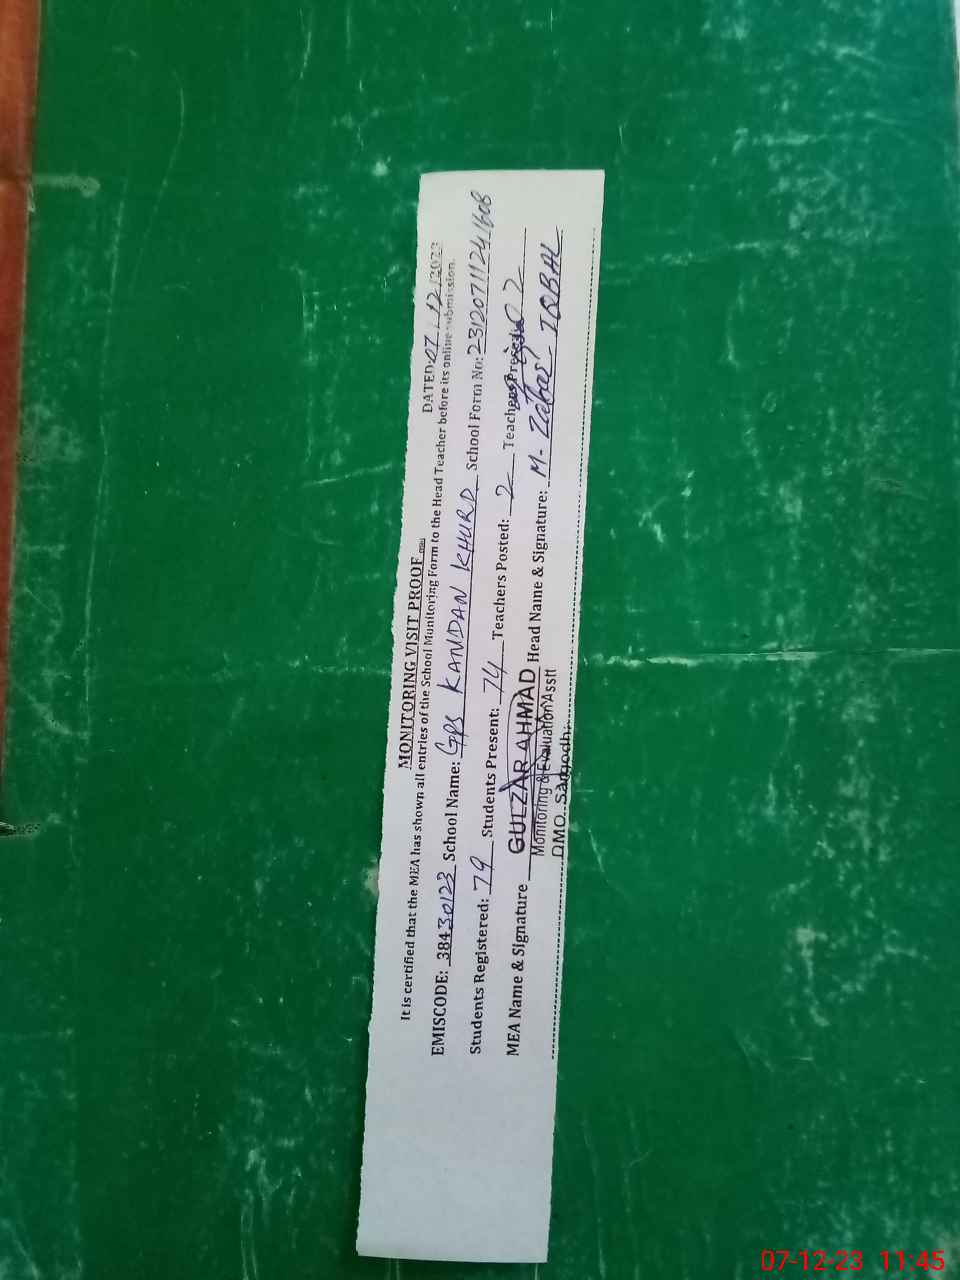 MONITORING VISIT PROOF
DATED: 07/12/2023
It is certified that the MEA has shown all entries of the School Monitoring Form to the Head Teacher before its online submission.
EMISCODE: 38430123 School Name: GPS KANDAN KHURD School Form No: 23120711241608
Students Registered: 79 Students Present: 74 Teachers Posted: 2 Teachers Present: 02
MEA Name & Signature GULZAR AHMAD Head Name & Signature: M. Zafar IQBAL
Monitoring & Evaluation Asstt
DMO. Sargodha
07-12-23 11:45